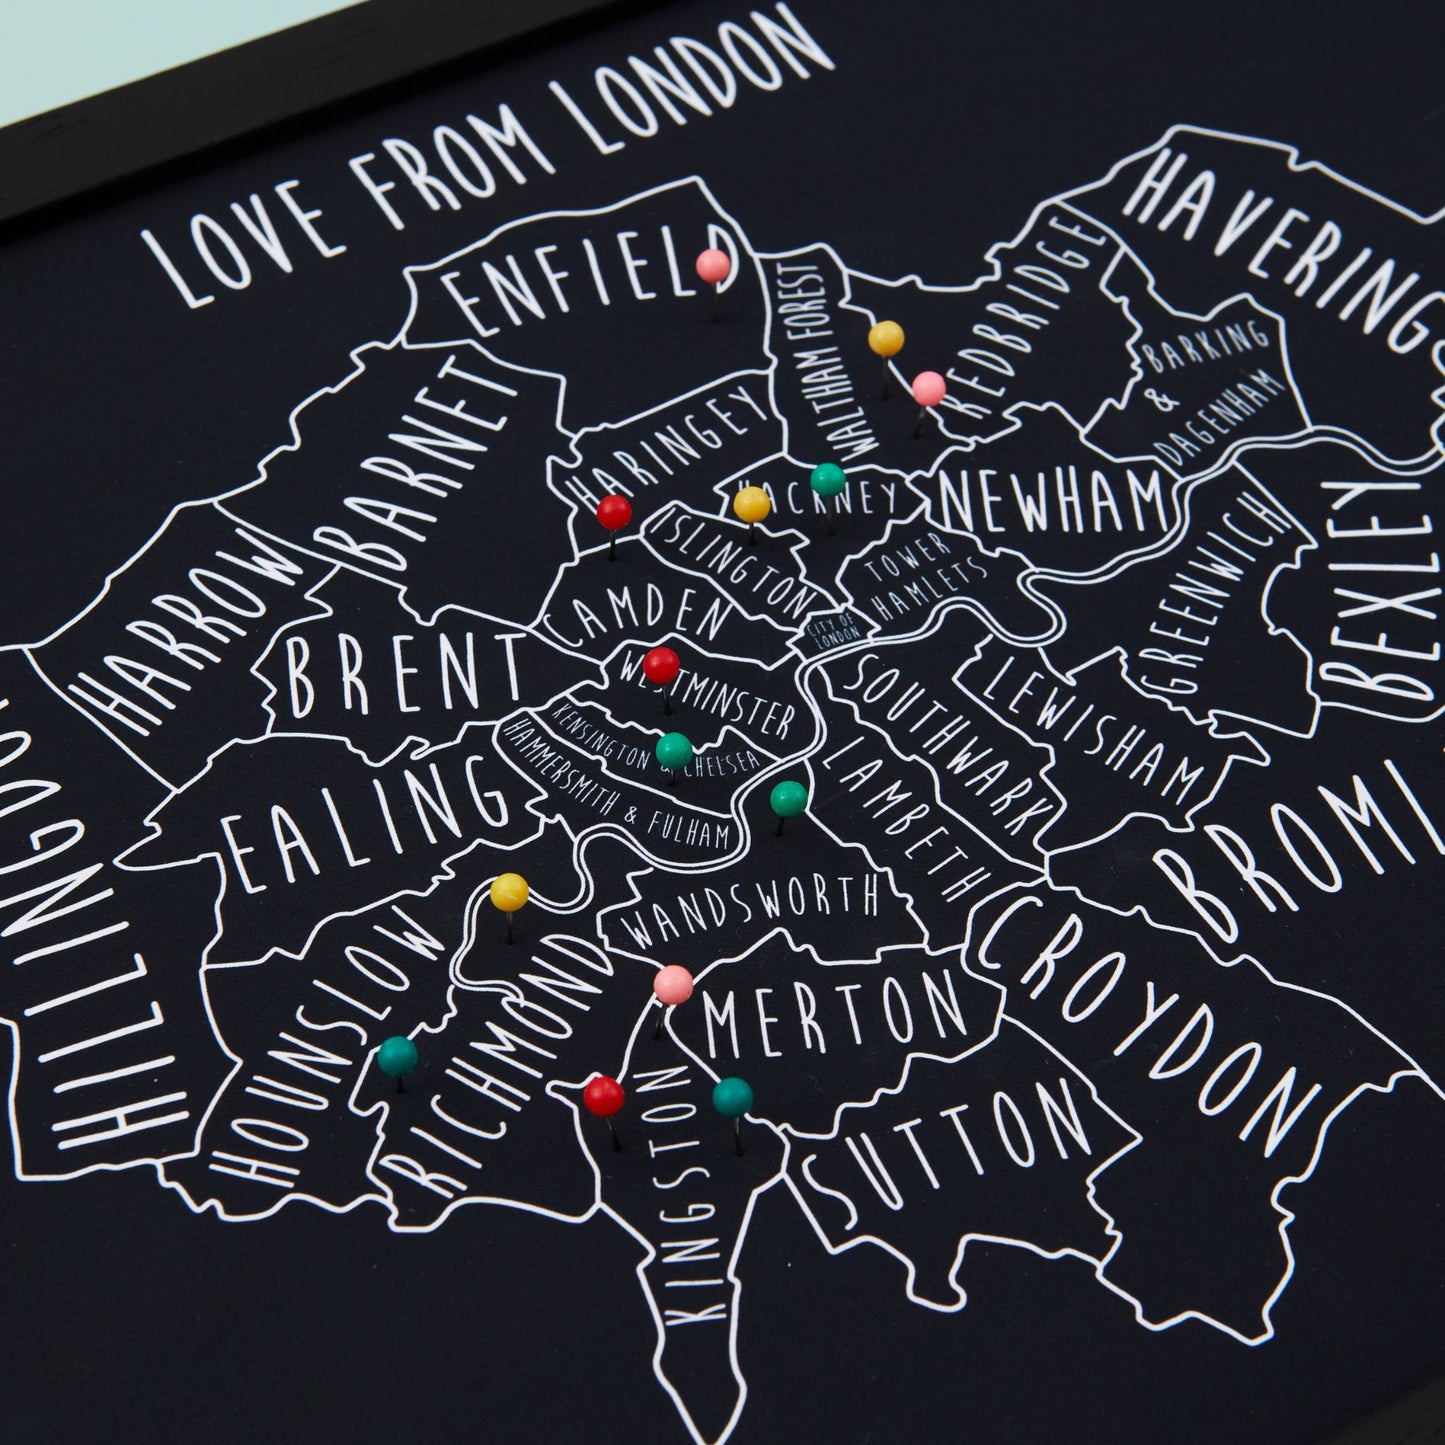 LOVE FROM LONDON
ENFIELD
HAVERING
WALTHAM FOREST
REDBRIDGE
BARKING
&
DAGENHAM
BARNET
HARINGEY
HARROW
HACKNEY
NEWHAM
ISLINGTON
TOWER
HAMLETS
CAMDEN
CITY OF
LONDON
GREENWICH
BEXLEY
BRENT
WESTMINSTER
KENSINGTON & CHELSEA
HAMMERSMITH & FULHAM
SOUTHWARK
LEWISHAM
LAMBETH
EALING
HILLINGD
WANDSWORTH
BROML
HOUNSLOW
RICHMOND
MERTON
CROYDON
KINGSTON
SUTTON